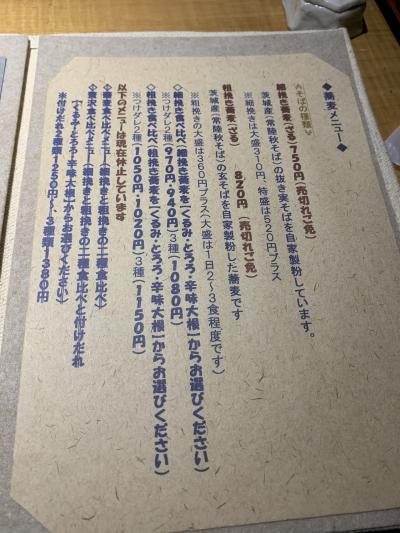 ◆蕎麦メニュー◆
<そばの種類>
細挽き蕎麦(ざる)750円(売切れご免)
茨城産(常陸秋そば)の抜き実そばを自家製粉しています。
※細挽きは大盛310円、特盛は520円プラス
粗挽き蕎麦(ざる) 820円(売切れご免)
茨城産(常陸秋そば)の玄そばを自家製粉した蕎麦です
※粗挽きの大盛は360円プラス(大盛は1日2~3食程度です)
◇細挽き食べ比べ(細挽き蕎麦を【くるみ・とろろ・辛味大根】からお選びください)
※つけダレ2種(970円・940円)3種(1080円)
◇粗挽き食べ比べ(粗挽き蕎麦を【くるみ・とろろ・辛味大根】からお選びください)
※つけダレ2種(1050円・1020円)3種(1150円)
以下のメニューは現在休止しています
◇蕎麦食べ比べメニュー(細挽きと粗挽きの二種食べ比べ)
◇贅沢食べ比べメニュー(細挽きと粗挽きの二種食べ比べと付けだれ
【くるみ・とろろ・辛味大根】からお選びください)
※付けだれ2種類1250円~、3種類1380円